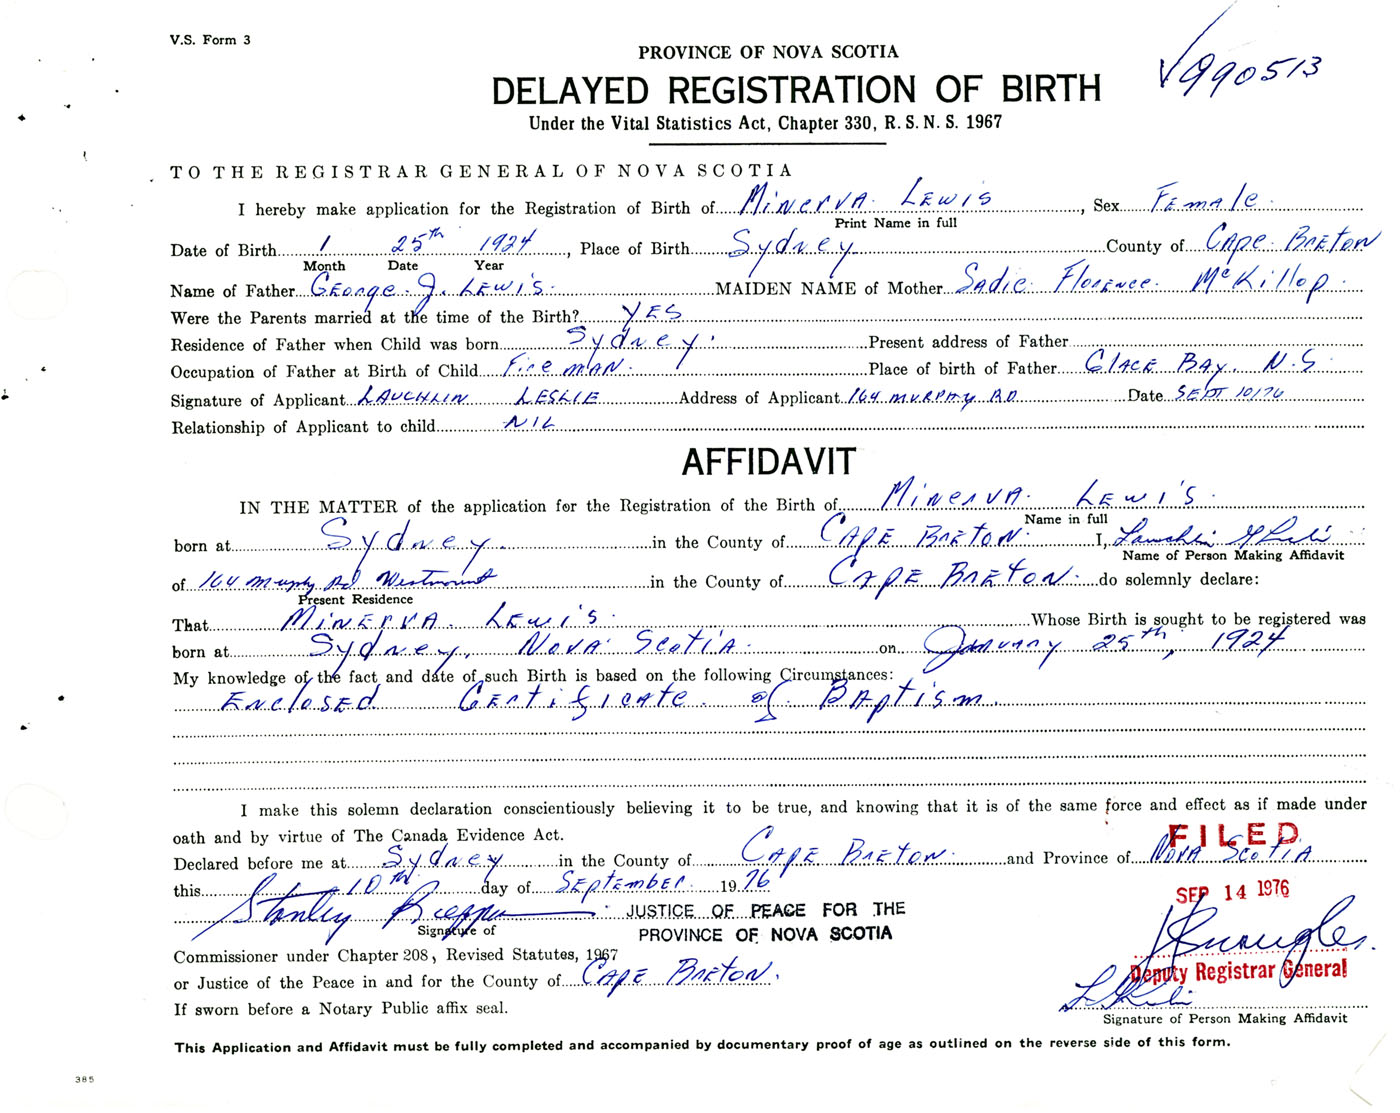 V.S. Form 3
PROVINCE OF NOVA SCOTIA
990513
DELAYED REGISTRATION OF BIRTH
Under the Vital Statistics Act, Chapter 330, R.S.N.S. 1967
TO THE REGISTRAR GENERAL OF NOVA SCOTIA
I hereby make application for the Registration of Birth of MINERVA LEWIS, Sex FEMAlE
Print Name in full
Date of Birth 1 25th 1924, Place of Birth Sydney County of CApe BRETON
Month Date Year
Name of Father GEORGE J. LEWIS MAIDEN NAME of Mother Sadie Florence McKillop
Were the Parents married at the time of the Birth? YES
Residence of Father when Child was born Sydney Present address of Father
Occupation of Father at Birth of Child FireMAN Place of birth of Father GlACE BAY, N.S
Signature of Applicant LAUCHLIN LESLIE Address of Applicant 164 MURPHY RD Date SEPT 10/76
Relationship of Applicant to child NIL
AFFIDAVIT
IN THE MATTER of the application for the Registration of the Birth of MINERVA LEWIS
Name in full
born at Sydney in the County of CAPE BRETON I, Lauchlin
Name of Person Making Affidavit
of 164 Murphy Rd Westmount in the County of CAPE BRETON do solemnly declare:
Present Residence
That MINERVA LEWIS Whose Birth is sought to be registered was
born at Sydney, NOVA SCOTIA on JANUARY 25th, 1924
My knowledge of the fact and date of such Birth is based on the following Circumstances:
ENCLOSED CERTIFICATE of BAPTISM.
I make this solemn declaration conscientiously believing it to be true, and knowing that it is of the same force and effect as if made under
oath and by virtue of The Canada Evidence Act.
FILED
Declared before me at Sydney in the County of CAPE BRETON and Province of NOVA SCOTIA
this 10th day of SEPTEMBER 1976
SEP 14 1976
Stanley JUSTICE OF PEACE FOR THE
Signature of PROVINCE OF NOVA SCOTIA
Commissioner under Chapter 208, Revised Statutes, 1967
Deputy Registrar General
or Justice of the Peace in and for the County of CAPE BRETON.
If sworn before a Notary Public affix seal.
Signature of Person Making Affidavit
This Application and Affidavit must be fully completed and accompanied by documentary proof of age as outlined on the reverse side of this form.
385